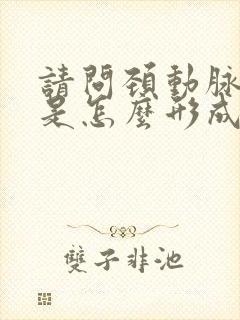 請問頸動脈
是怎麼形成
雙子非池